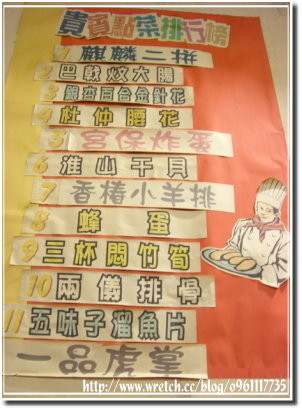 貴賓點菜排行榜
1 麒麟二拼
2 巴戟炆大腸
3 銀杏百合金針花
4 杜仲腰花
5 宮保炸蛋
6 淮山干貝
7 香椿小羊排
8 蜂蛋
9 三杯悶竹筍
10 兩儀排骨
11 五味子溜魚片
一品虎掌
http://www.wretch.cc/blog/o961117735